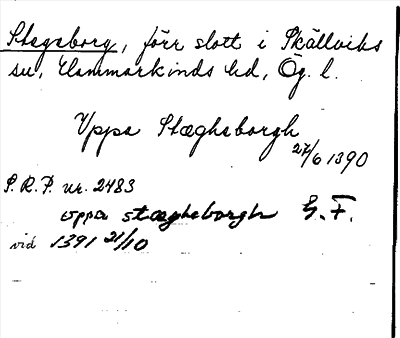 Stegeborg, förr slott i Skällviks
sn, Hammarkinds hd, Ög. l.
Uppa Stægheborgh
27/6 1390
S.R.P. nr. 2483
uppa stægheborgh G.F.
vid 1391 21/10